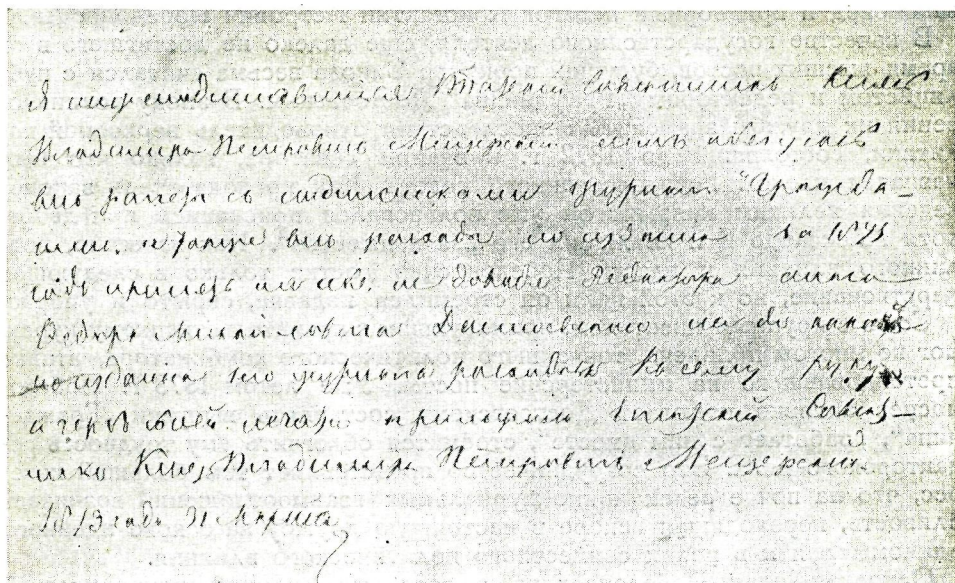 Я нижеподписавшийся Статский Советникъ Князь
Владимиръ Петровичь Мещерскій симъ обязуюсь
всѣ разчеты съ подписчиками журнала "Гражда-
нинъ", а также всѣ расходы по изданію за 1873
годъ принять на себя, и Редактора
Федора Михайловича Достоевскаго ни до какихъ
по изданію его журнала расходовъ. Къ сему руку
и гербъ моей печати приложилъ Статскій Совѣт-
никъ Князь Владимиръ Петровичь Мещерскій
1873 года Марта